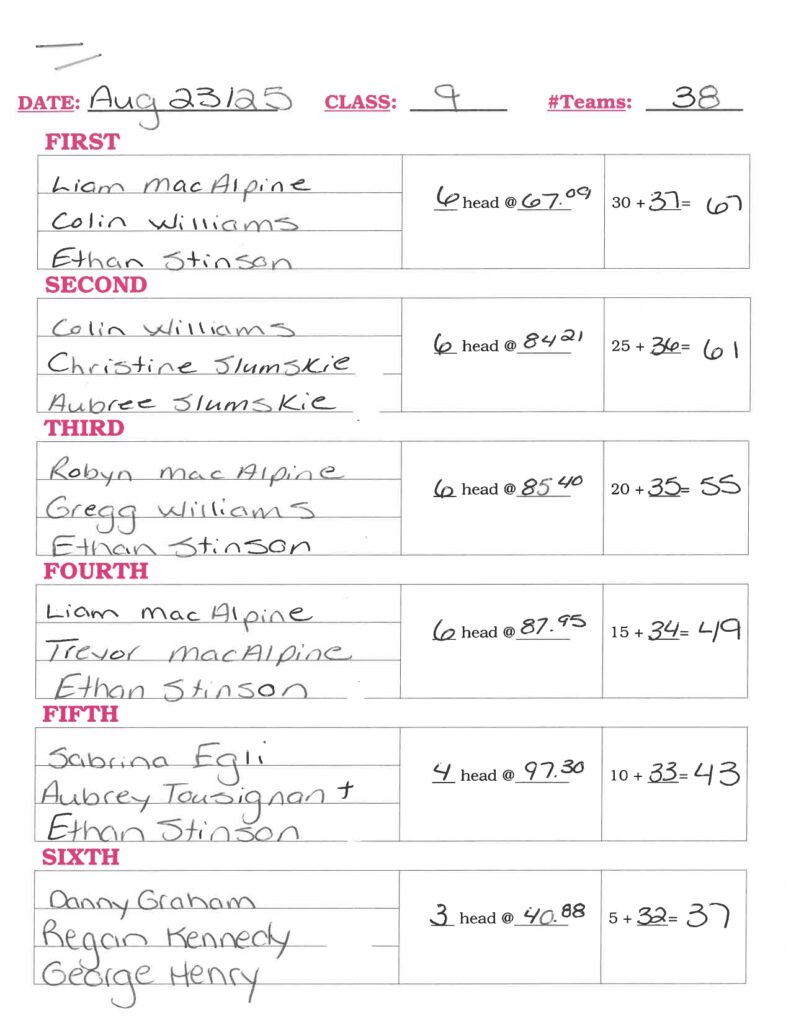 DATE: Aug 23/25 CLASS: 9 #Teams: 38
FIRST
Liam MacAlpine
Colin Williams
Ethan Stinson
6 head @ 67.09
30 + 37 = 67
SECOND
Colin Williams
Christine Slumskie
Aubree Slumskie
6 head @ 84 21
25 + 36 = 61
THIRD
Robyn MacAlpine
Gregg Williams
Ethan Stinson
6 head @ 85 40
20 + 35 = 55
FOURTH
Liam MacAlpine
Trevor MacAlpine
Ethan Stinson
6 head @ 87.95
15 + 34 = 49
FIFTH
Sabrina Egli
Aubrey Tousignant
Ethan Stinson
4 head @ 97.30
10 + 33 = 43
SIXTH
Danny Graham
Regan Kennedy
George Henry
3 head @ 40.88
5 + 32 = 37